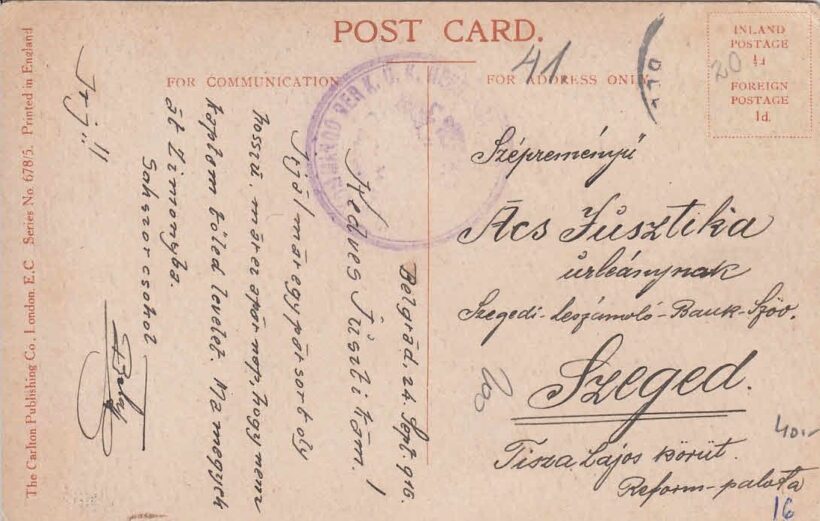 POST CARD.
FOR COMMUNICATION
FOR ADDRESS ONLY
INLAND
POSTAGE
½d
FOREIGN
POSTAGE
1d.
41.
20
Belgrád, 24 Sept. 916.
Kedves Jusztikám!
Írjál már egy pár sort oly
hosszú, már ez a pár nap, hogy nem
kaptam tőled levelet. Ma megyek
át Zimonyba.
Sokszor csókol
Írj!!
Szépreményű
Ács Jusztika
úrleánynak
Szegedi-Leszámoló-Bank-Szöv.
Szeged.
Tisza Lajos körút.
Reform-palota
200
40.-
16
The Carlton Publishing Co., London, E.C. Series No. 678/5. Printed in England